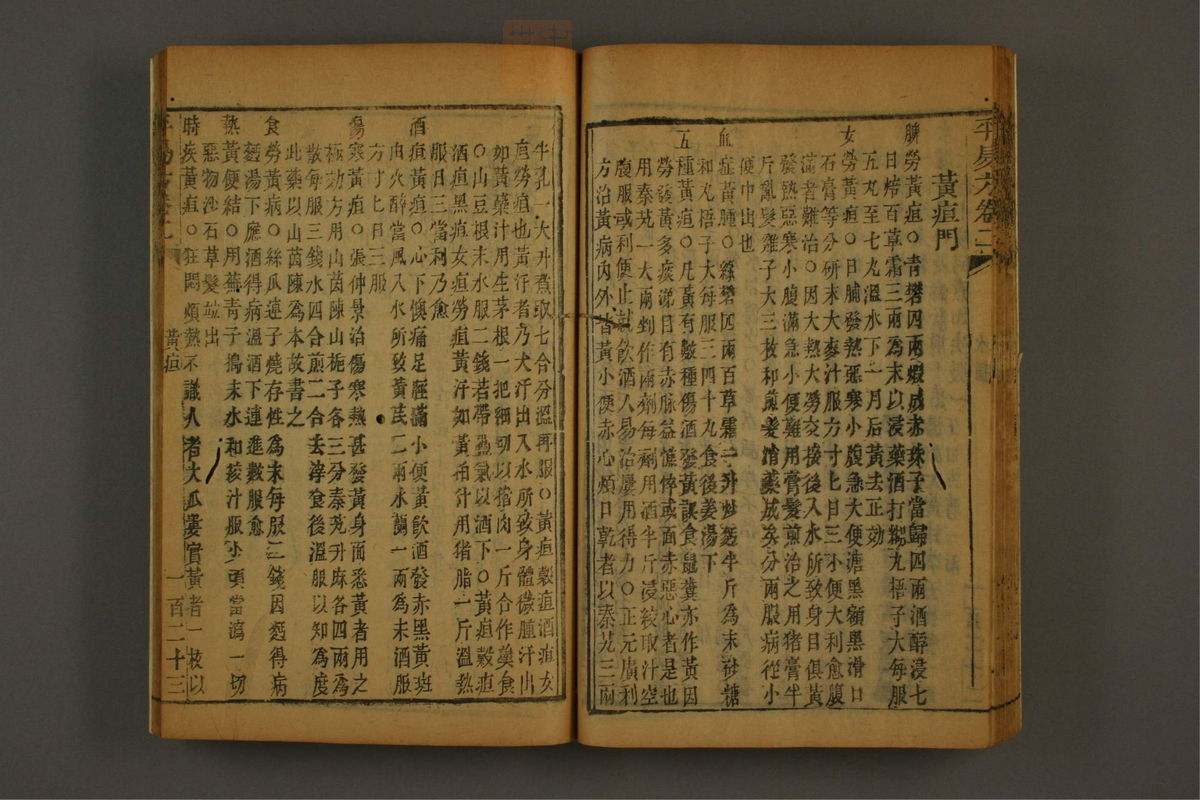 黃疸門
脾勞黃疸○青礬四兩煅成赤珠子當歸四兩酒醉浸七
日焙百草霜三兩為末以浸藥酒打糊丸梧子大每服
五丸至七丸溫水下一月后黃去正効
女勞黃疸○日脯發熱惡寒小腹急大便溏黑額黑滑口
石膏等分研末大麥汁服方寸匕日三小便大利愈腹
滿者難治○因大熱大勞交接後入水所致身目俱黃
發熱惡寒小腹滿急小便難用膏髮煎治之用猪膏半
斤亂髮雞子大三枚和煎髮消藥成矣分兩服病從小
便中出也
血症黃腫○綠礬四兩百草霜一升炒麪半斤為末砂糖
和丸梧子大每服三四十丸食後姜湯下
五種黃疸○凡黃有數種傷酒發黃誤食鼠糞亦作黃因
勞發黃多痰涕目有赤脉益憔悴或面赤惡心者是也
用秦艽一大兩剉作兩劑每劑用酒半斤浸絞取汁空
腹服或利便止就飲酒人易治屢用得力○正元廣利
方治黃病內外皆黃小便赤心煩口乾者以秦艽三兩
牛乳一大升煮取七合分溫再服○黃疸穀疸酒疸女
疸勞疸也黃汗者乃大汗出入水所致身體微腫汗出
如黃蘗汁用生茅根一把細切以猪肉一斤合作羹食
○山豆根末水服二錢若帶蠱氣以酒下○黃疸穀疸
酒疸黑疸女疸勞疸黃汗如黃栢汁用猪脂一斤溫熱
服日三當利乃愈
酒疸黃疸○心下懊痛足脛滿小便黃飲酒發赤黑黃斑
由大醉當風入水所致黃芪二兩木蘭一兩為末酒服
方寸匕日三服
傷寒黃疸○張仲景治傷寒熱甚發黃身面悉黃者用之
極効方用山茵陳山梔子各三分秦艽升麻各四兩為
散每服三錢水四合煎二合去滓食後溫服以知為度
此藥以山茵陳為本故書之
食勞黃病○絲瓜連子燒存性為末每服二錢因麪得病
麪湯下應酒得病溫酒下連進數服愈
熱黃便結○用蕪青子搗末水和絞汁服少頃當瀉一切
惡物沙石草髮並出
時疾黃疸○狂悶煩熱不識人者大瓜蔞實黃者一枚以
黃疸
一百二十三